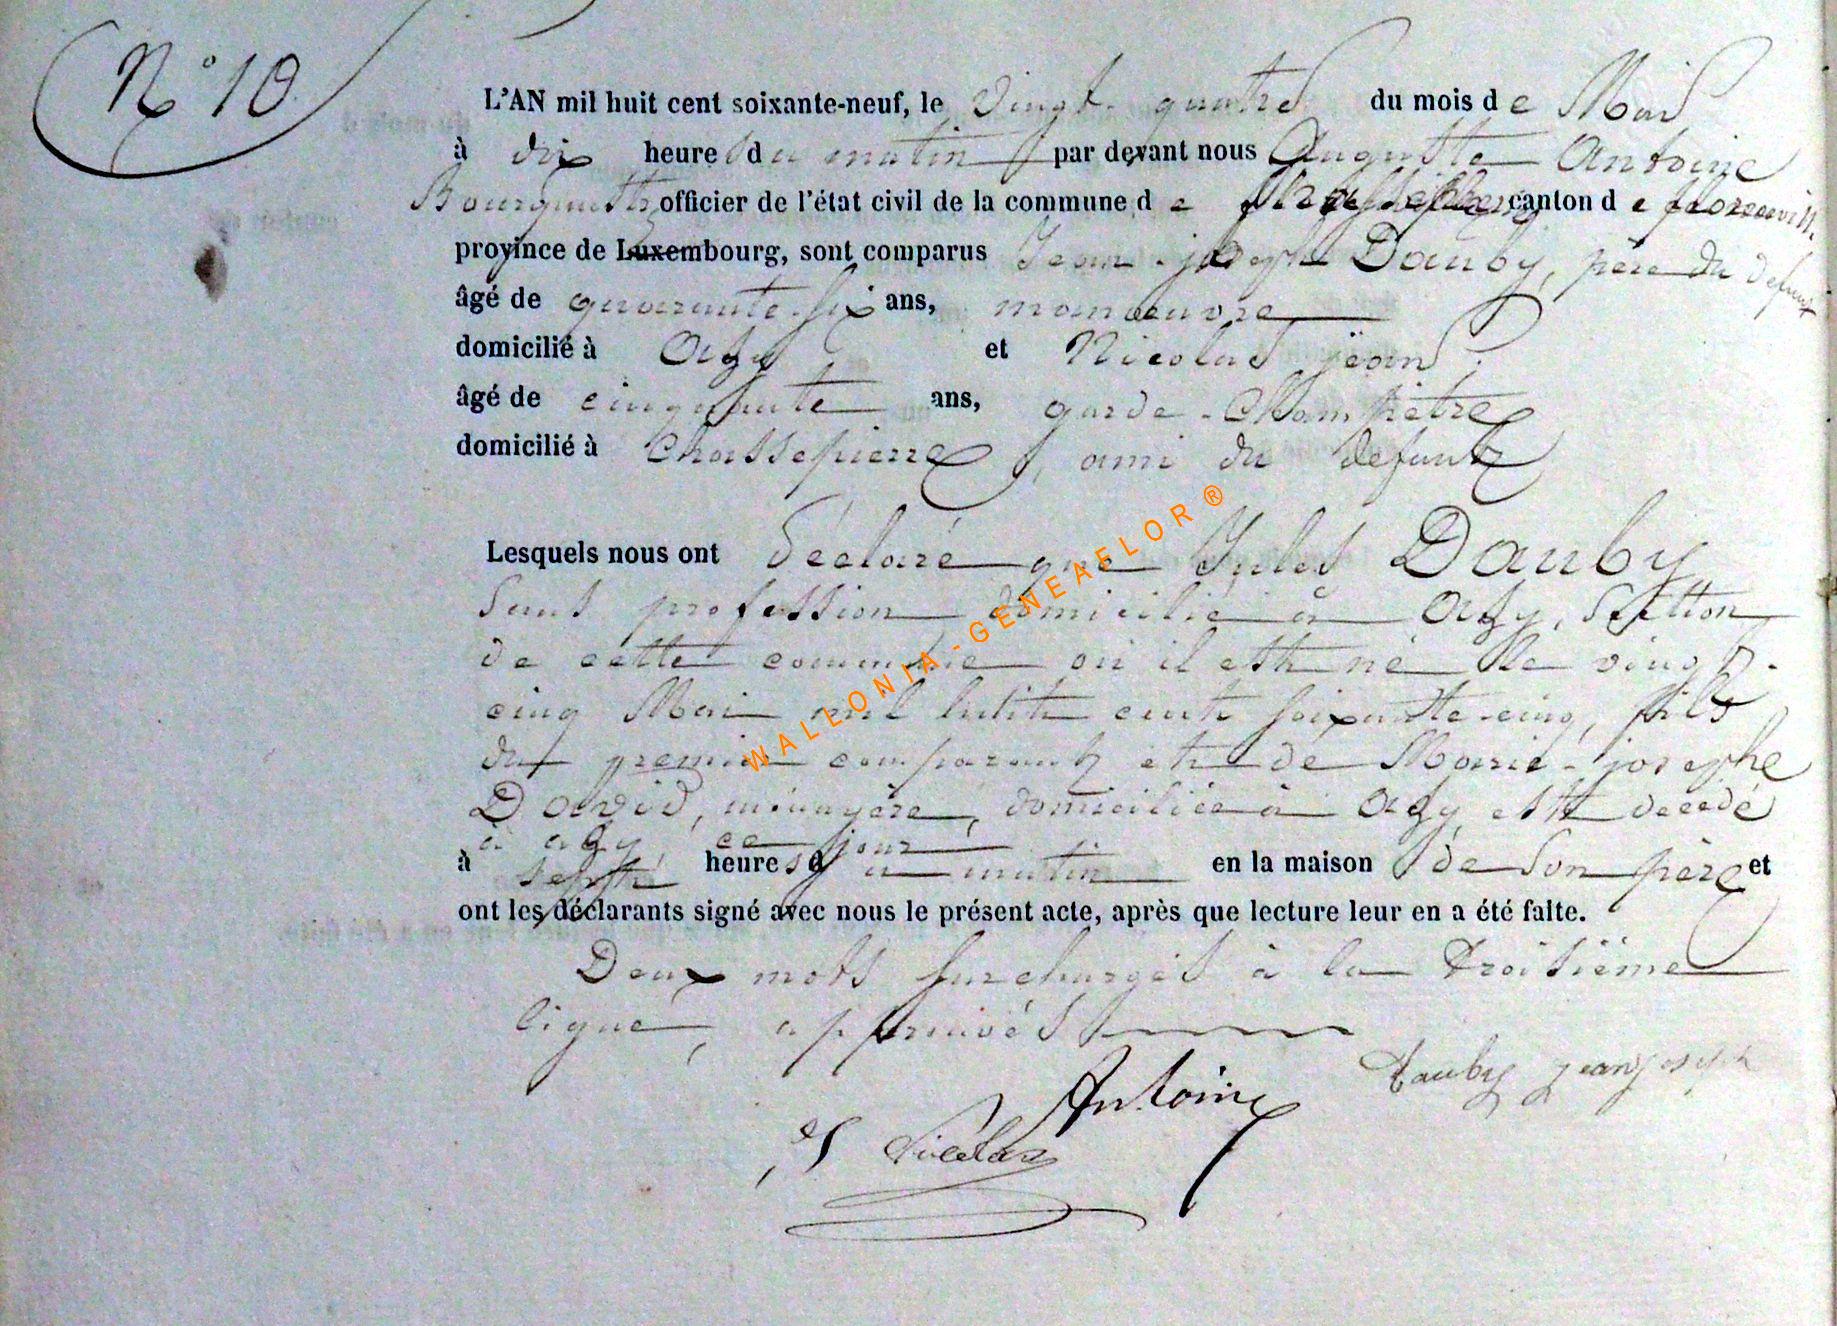 N° 10
L'AN mil huit cent soixante-neuf, le vingt-quatre du mois de Mai
à dix heures du matin par devant nous Auguste Antoine
Bourgmestre officier de l'état civil de la commune de canton de florenville
province de Luxembourg, sont comparus Jean-joseph Dauby, père du defunt
âgé de quarante-six ans, manoeuvre
domicilié à Azy et Nicolas jean
âgé de cinquante ans, garde-Champêtre
domicilié à Chassepierre, ami du defunt
Lesquels nous ont déclaré que Jules Dauby
Sans profession domicilié à Azy, Section
de cette commune où il est né le vingt-
cinq Mai mil huit cent soixante-cinq, fils
du premier comparant et de Marie-josephe
David, ménagère, domiciliée à Azy, est decedé
à azy, ce jour
à sept heures du matin en la maison de son père et
ont les déclarants signé avec nous le présent acte, après que lecture leur en a été faite.
Deux mots surchargés à la troisième
ligne, approuvés
Dauby jean joseph
Antoine
J Nicolas
WALLONIA-GENEAFLOR®